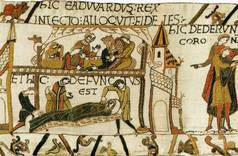 HIC EADWARDUS: REX
IN LECTO: ALLOQUIT: FIDELES:
ET HIC: DEFUNCTUS
EST
HIC DEDERUN
CORO N